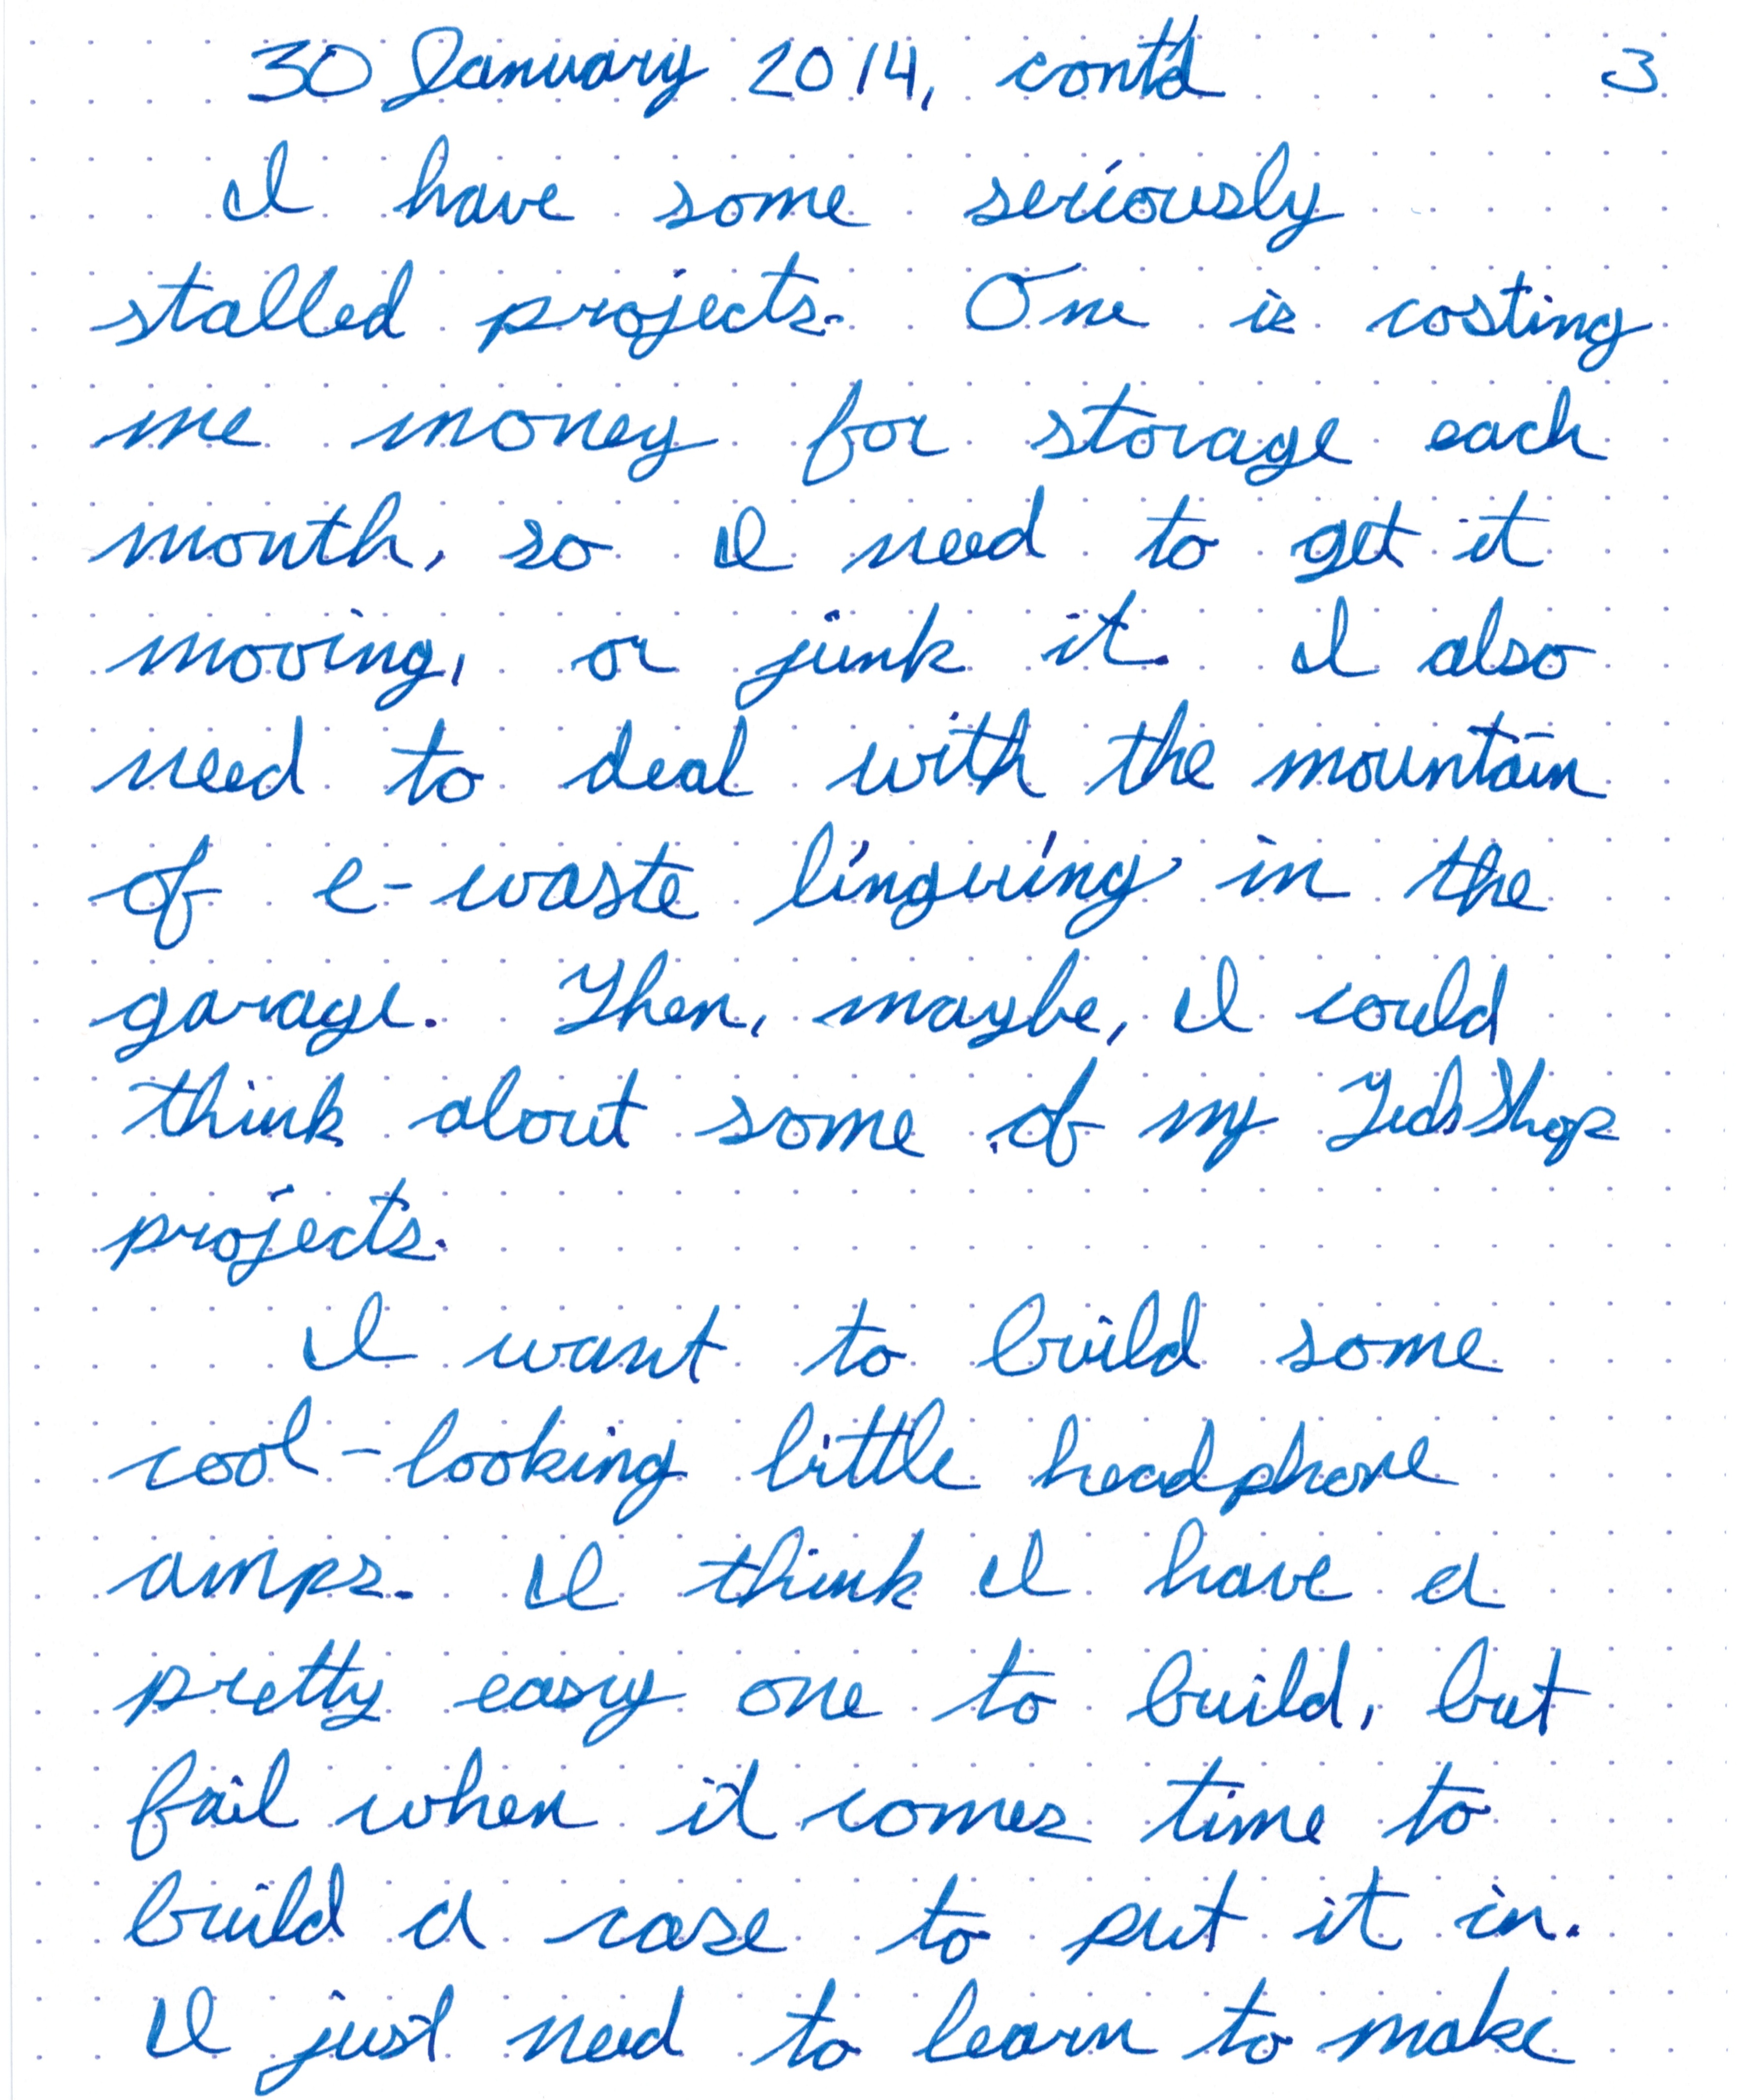 30 January 2014, cont'd 3
I have some seriously
stalled projects. One is costing
me money for storage each
month, so I need to get it
moving, or junk it. I also
need to deal with the mountain
of e-waste lingering in the
garage. Then, maybe, I could
think about some of my TechShop
projects.
I want to build some
cool-looking little headphone
amps. I think I have a
pretty easy one to build, but
fail when it comes time to
build a case to put it in.
I just need to learn to make